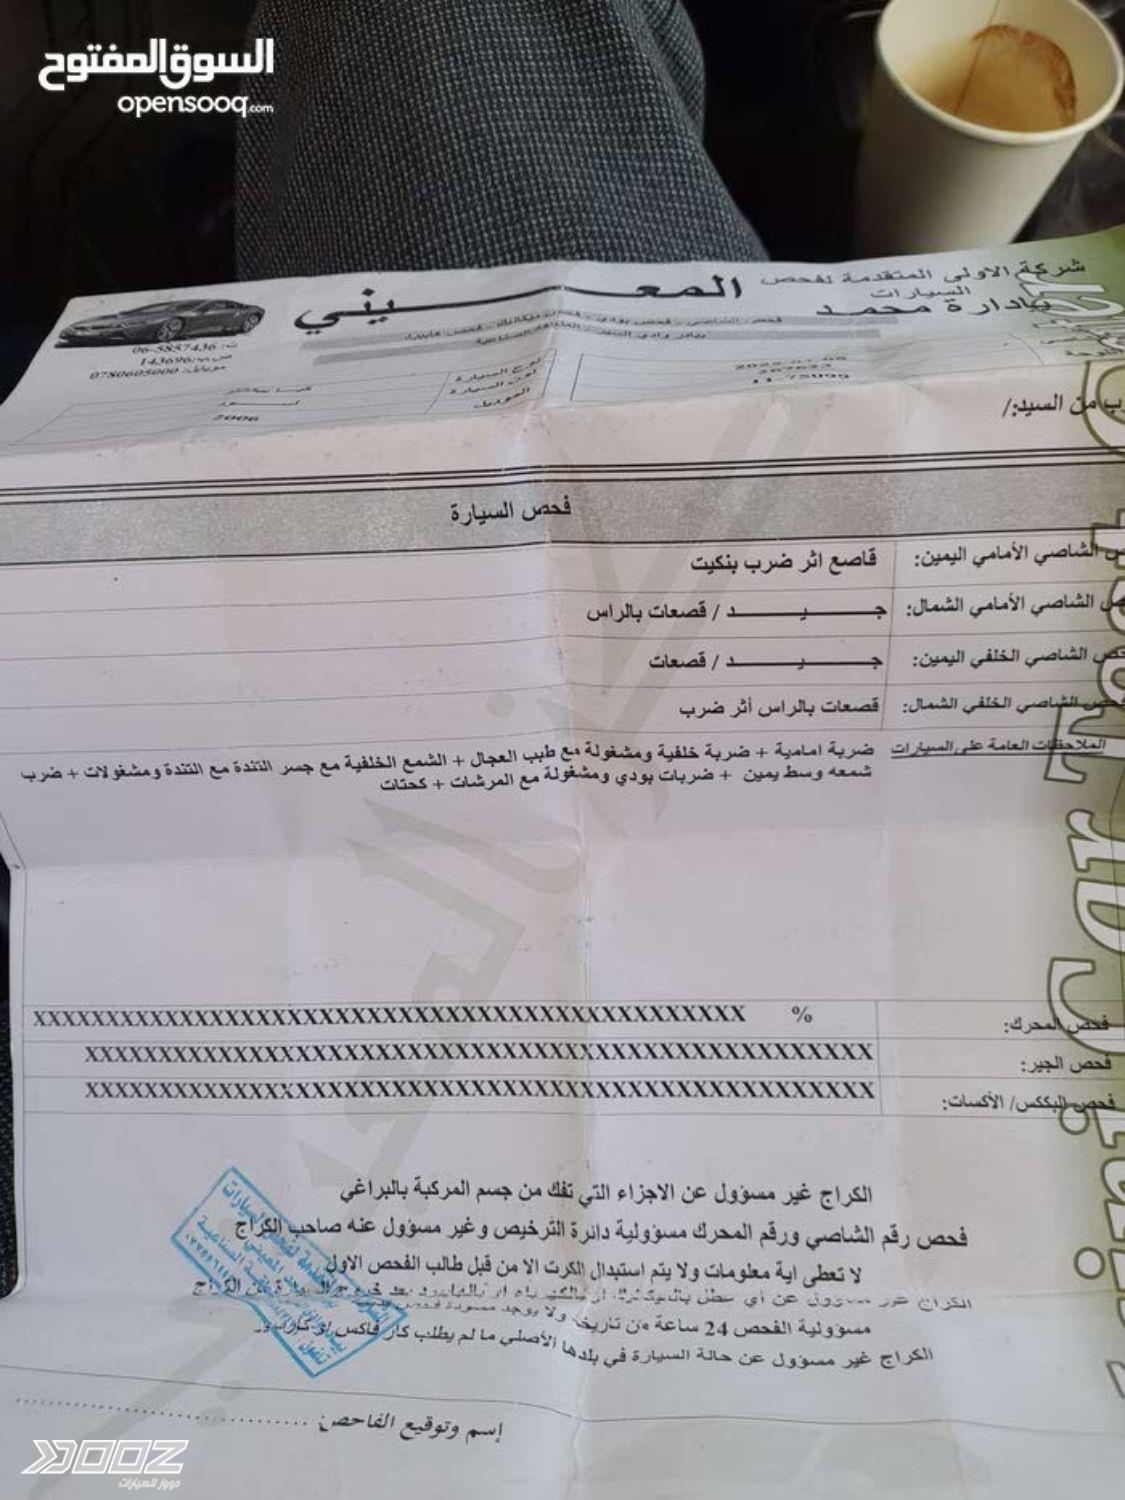 السوق المفتوح
opensooq.com
شركة الاولى المتقدمة لفحص
السيارات
بادارة محمد
المعـــــيني
ت: 06-5857436
ص.ب: 143696
موبايل: 0780605000
نوع السيارة
لون السيارة
الموديل
2006
11-75099
من السيد:/
فحص السيارة
الشاصي الأمامي اليمين: قاصع اثر ضرب بنكيت
الشاصي الأمامي الشمال: جـــــيـــــد / قصعات بالراس
الشاصي الخلفي اليمين: جـــــيـــــد / قصعات
فحص الشاصي الخلفي الشمال: قصعات بالراس أثر ضرب
الملاحظات العامة على السيارات ضربة امامية + ضربة خلفية ومشغولة مع طبب العجال + الشمع الخلفية مع جسر التندة مع التندة ومشغولات + ضرب
شمعه وسط يمين + ضربات بودي ومشغولة مع المرشات + كحتات
فحص المحرك: % XXXXXXXXXXXXXXXXXXXXXXXXXXXXXXXXXXXXXXXXXXXXXXXX
فحص الجير: XXXXXXXXXXXXXXXXXXXXXXXXXXXXXXXXXXXXXXXXXXXXXXXXXXXXX
فحص البككس/ الأكسات: XXXXXXXXXXXXXXXXXXXXXXXXXXXXXXXXXXXXXXXXXXXXXXXXXXXXX
الكراج غير مسؤول عن الاجزاء التي تفك من جسم المركبة بالبراغي
فحص رقم الشاصي ورقم المحرك مسؤولية دائرة الترخيص وغير مسؤول عنه صاحب الكراج
لا تعطى اية معلومات ولا يتم استبدال الكرت الا من قبل طالب الفحص الاول
الكراج غير مسؤول عن أي عطل بالميكانيك او بالكهرباء او بالهايبرد بعد خروج السيارة من الكراج
مسؤولية الفحص 24 ساعة من تاريخه ولا يوجد
الكراج غير مسؤول عن حالة السيارة في بلدها الأصلي ما لم يطلب كار فاكس او
إسم وتوقيع الفاحص:
DOOZ
دووز للسيارات